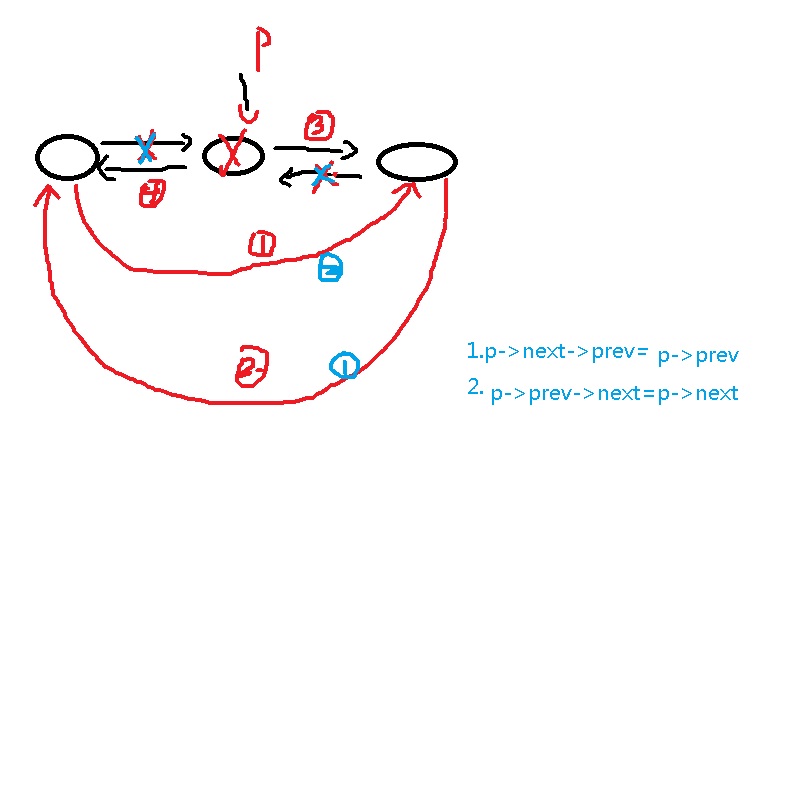 P
③
④
①
②
②
①
1.p->next->prev= p->prev
2. p->prev->next=p->next